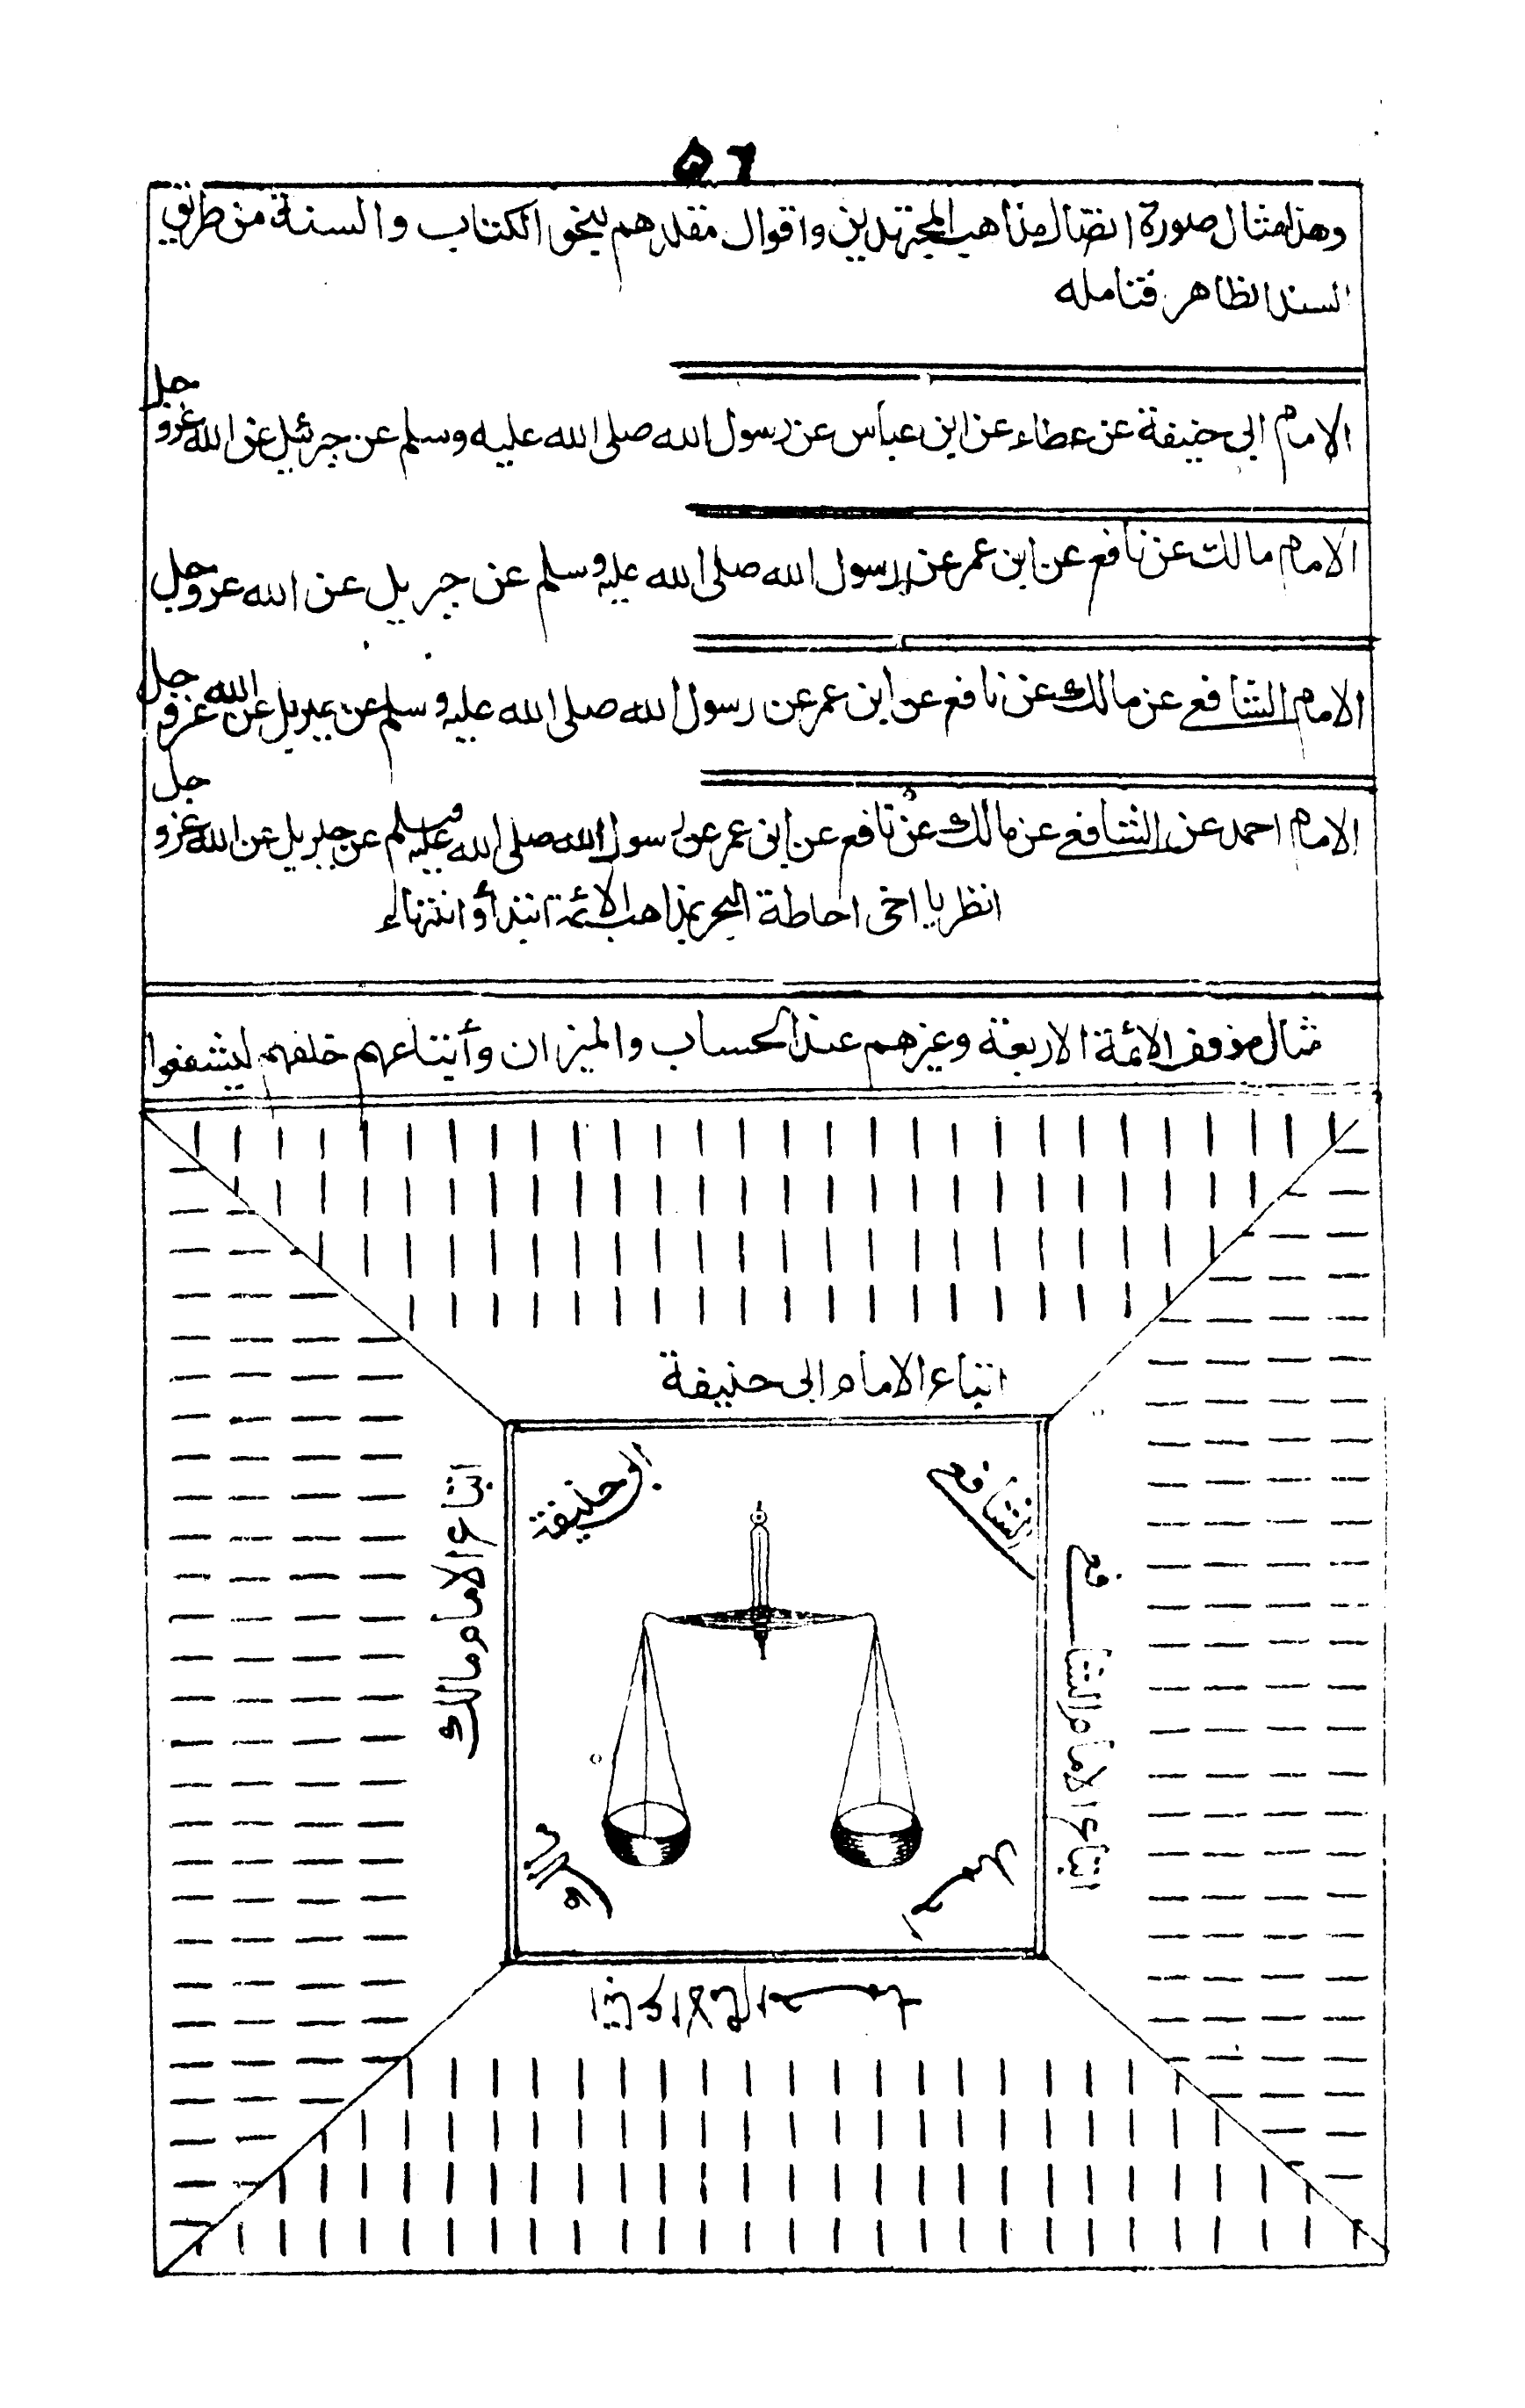 ٥٦
وهذا مثال صورة اتصال مذاهب المجتهدين واقوال مقلديهم بنحو الكتاب والسنة من طريق
السند الظاهر فتامله
الامام ابى حنيفة عن عطاء عن ابن عباس عن رسول الله صلى الله عليه وسلم عن جبرئيل عن الله عزوجل
الامام مالك عن نافع عن ابن عمر عن رسول الله صلى الله عليه وسلم عن جبريل عن الله عزوجل
الامام الشافعى عن مالك عن نافع عن ابن عمر عن رسول الله صلى الله عليه وسلم عن جبريل عن الله عزوجل
الامام احمد عن الشافعى عن مالك عن نافع عن ابن عمر عن رسول الله صلى الله عليه وسلم عن جبريل عن الله عزوجل
انظر يا اخى احاطة البحر بمذاهب الائمة ابتداء وانتهاء
مثال موقف الائمة الاربعة وغيرهم عند الحساب والميزان وأتباعهم خلفهم ليشفعوا
اتباع الامام ابى حنيفة
الشافعى
ابى حنيفة
اتباع الامام الشافعى
اتباع الامام مالك
احمد
مالك
اتباع الامام احمد